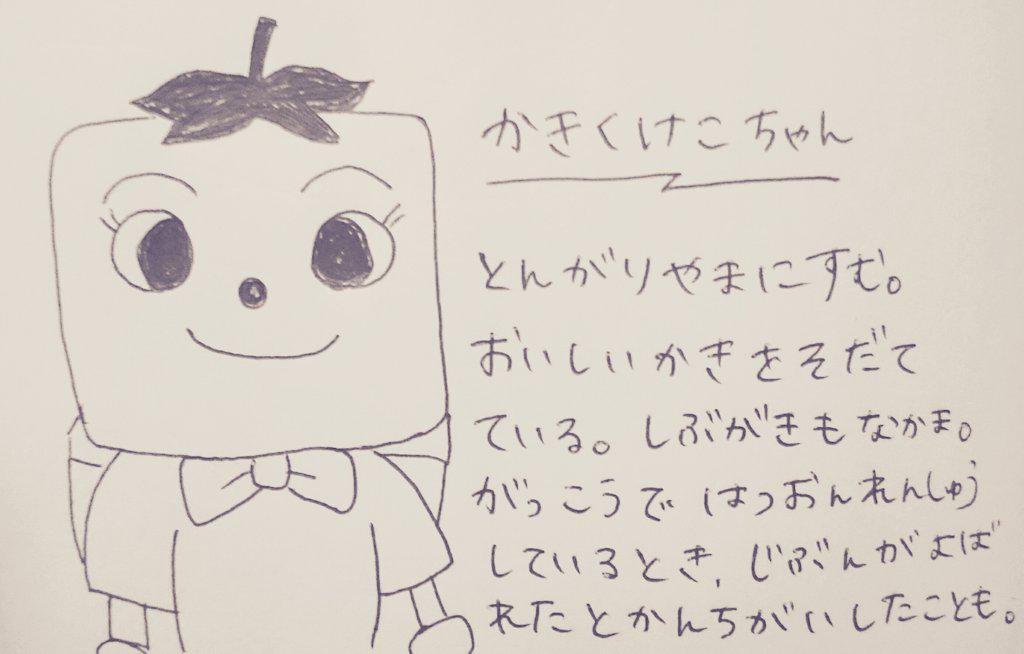 かきくけこちゃん
とんがりやまにすむ。
おいしいかきをそだて
ている。しぶがきもなかま。
がっこうで はつおんれんしゅう
しているとき、じぶんがよば
れたとかんちがいしたことも。